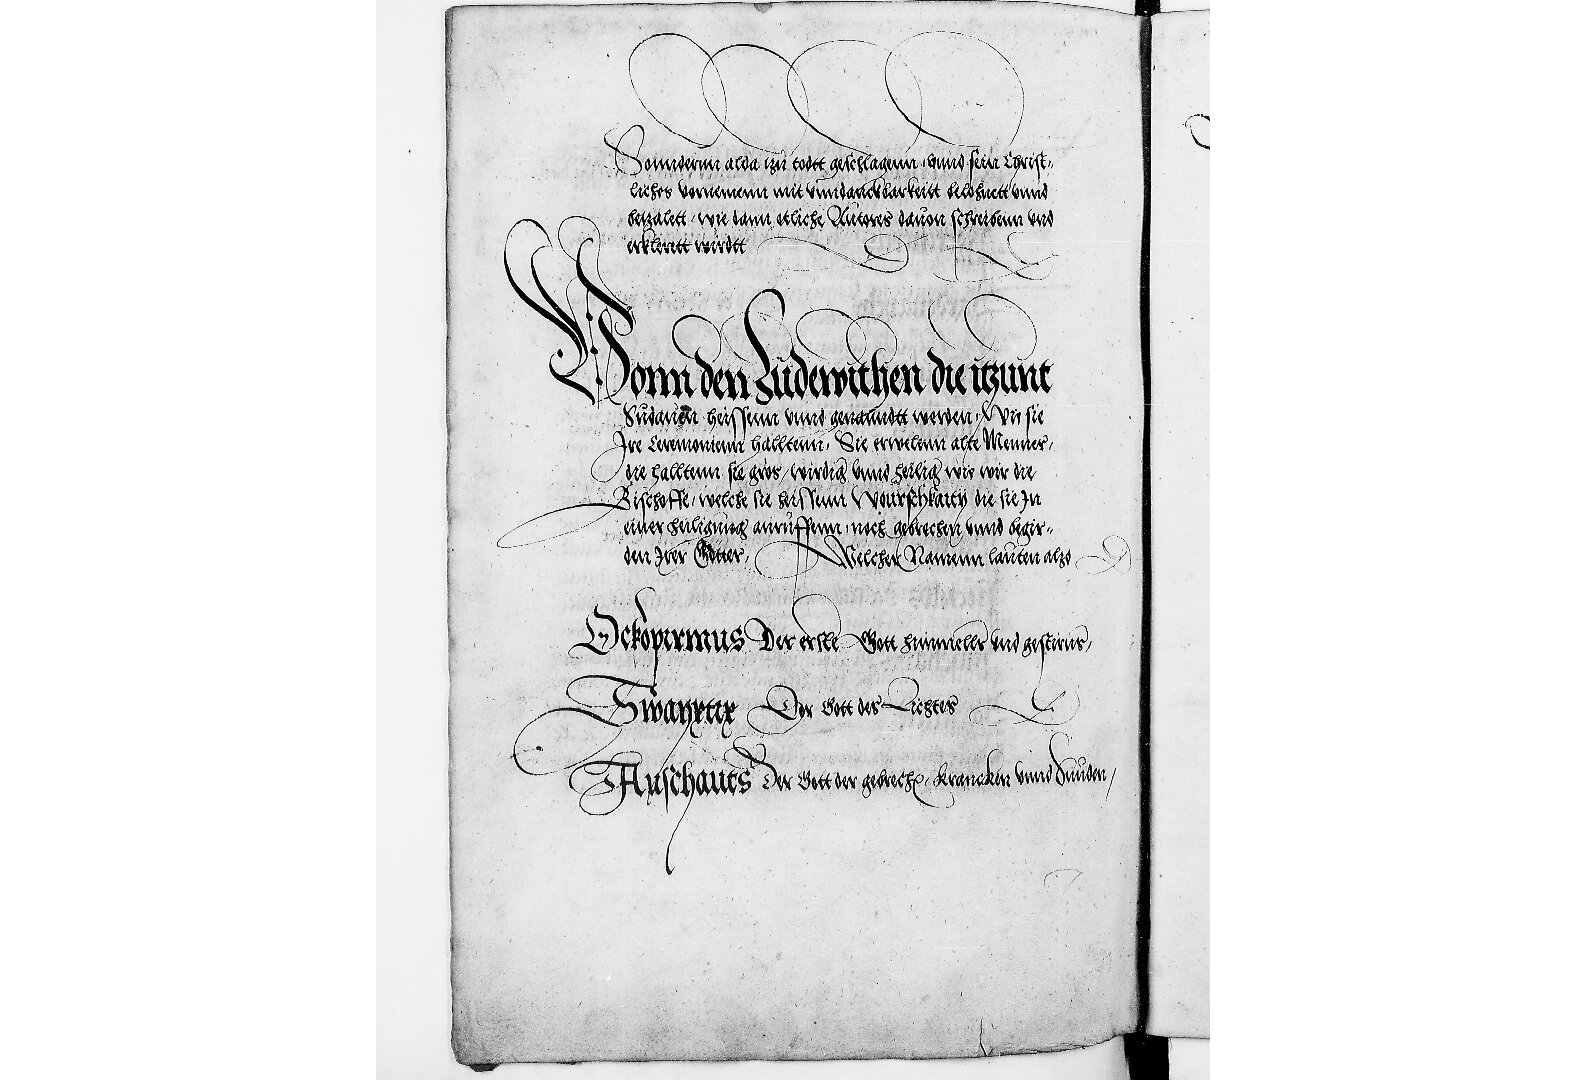 Sonndernn alda zu todtt geschlagenn, vnnd sein Christ-
liches vornemenn mit vnndanckbarkeitt belohnett vnnd
betzalett, wie dann etliche Autores dauon schreibenn vnd
erklerett wirdtt
Vonn den Sudewithen die itzunt
Sudauen heissenn vnnd genanndtt werden, Wie sie
Jre Ceremonienn halltenn, Sie erwelenn alte Menner,
die halltenn sie gros, wirdig vnnd heilig wie wir die
Bischoffe, welche sie heissenn Wourschkaity die sie Jn
einer heiligung anruffenn, noch gebrechen vnnd begir-
den Jrer Götter, Welcher Namenn lauten also
Ockopirmus Der erste Gott himmels vnd gestirns,
Swayxtix Der Gott des Lichtes
Auschauts Der Gott der gebrechen, Krancken vnnd Sunden,